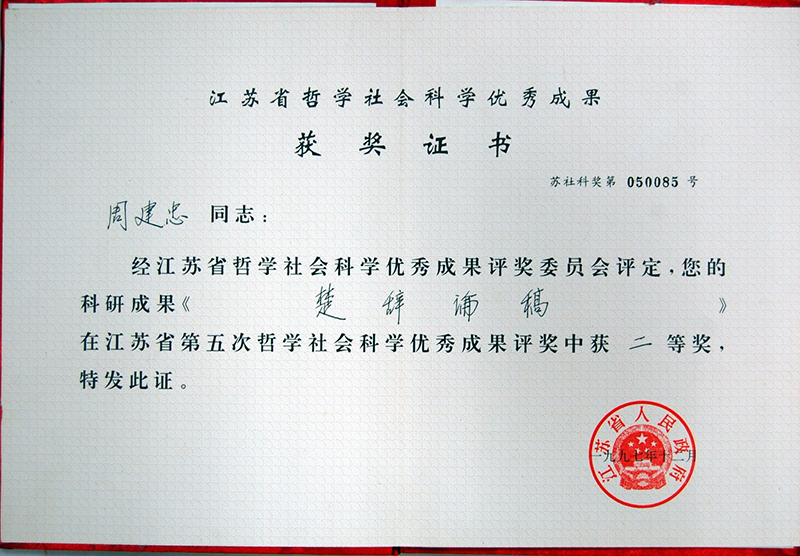 江苏省哲学社会科学优秀成果
获奖证书
苏社科奖第 050085 号
周建忠 同志：
经江苏省哲学社会科学优秀成果评奖委员会评定，您的
科研成果《 楚辞论稿 》
在江苏省第五次哲学社会科学优秀成果评奖中获 二 等奖，
特发此证。
江苏省人民政府
一九九七年十二月